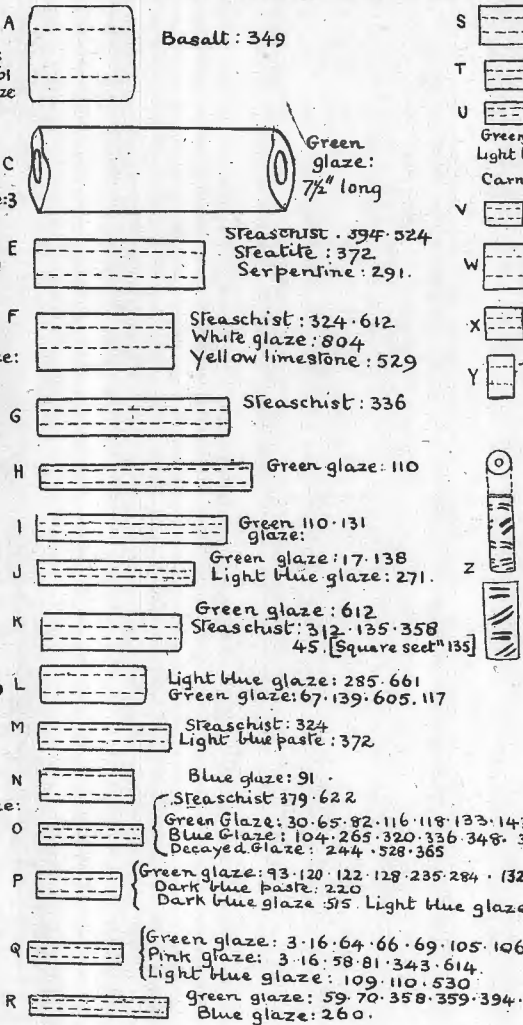 A
Basalt : 349
C
Green
glaze:
7½" long
E
Steaschist . 394 . 524
Steatite : 372
Serpentine : 291.
F
Steaschist : 324 . 612
White glaze : 804
Yellow limestone : 529
G
Steaschist : 336
H
Green glaze : 110
I
Green 110 . 131
glaze:
J
Green glaze : 17 . 138
Light blue glaze : 271.
K
Green glaze : 612
Steaschist : 312 . 135 . 358
45. [Square sectn 135]
L
Light blue glaze : 285 . 661
Green glaze : 67 . 139 . 605 . 117
M
Steaschist : 324
Light blue paste : 372
N
Blue glaze : 91 .
Steaschist 379 . 622
O
Green Glaze : 30 . 65 . 82 . 116 . 118 . 133 . 143
Blue Glaze : 104 . 265 . 320 . 336 . 348 .
Decayed Glaze : 244 . 528 . 365
P
Green glaze : 93 . 120 . 122 . 128 . 235 . 284 . 132
Dark blue paste : 220
Dark blue glaze : 515 . Light blue glaze
Q
Green glaze : 3 . 16 . 64 . 66 . 69 . 105 . 106
Pink glaze : 3 . 16 . 58 . 81 . 343 . 614 .
Light blue glaze : 109 . 110 . 530
R
green glaze : 59 . 70 . 358 . 359 . 394 .
Blue glaze : 260 .
S
T
U
Green
Light
Carn
V
W
X
Y
Z